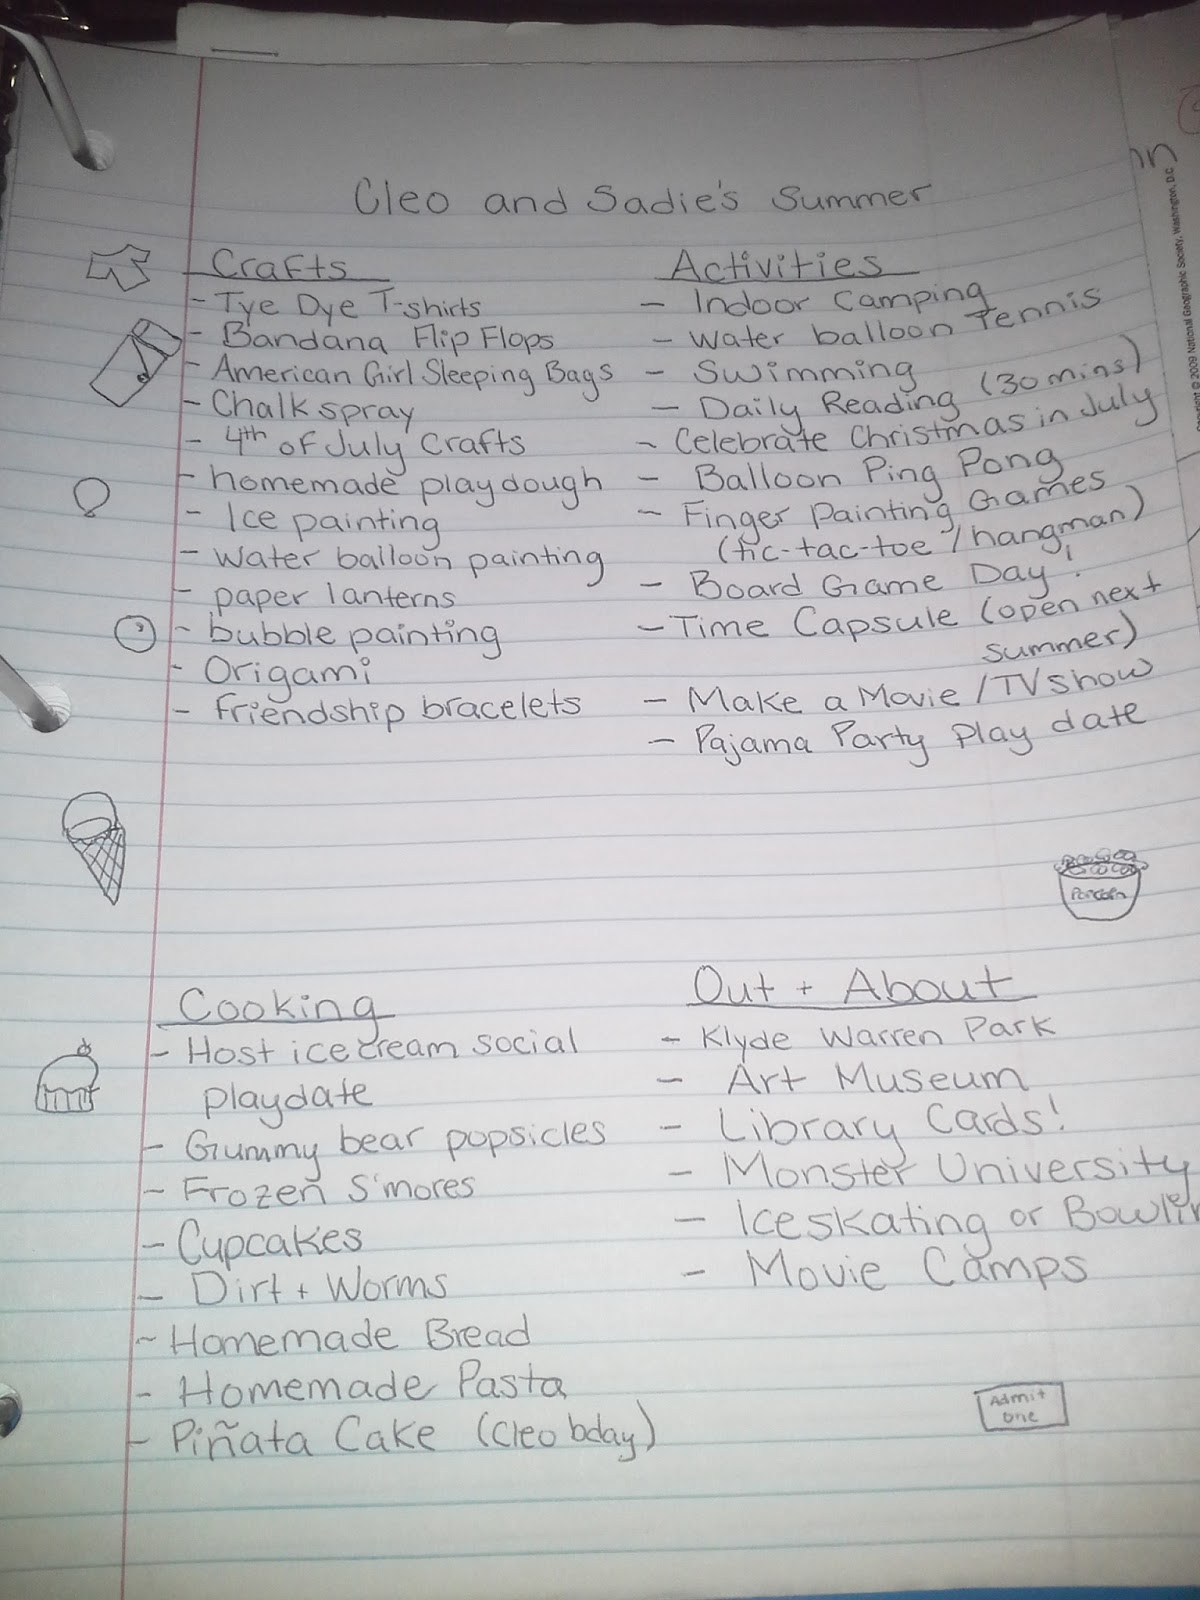 Cleo and Sadie's Summer
Crafts
- Tye Dye T-shirts
- Bandana Flip Flops
- American Girl Sleeping Bags
- Chalk spray
- 4th of July Crafts
- homemade playdough
- Ice painting
- Water balloon painting
- paper lanterns
- bubble painting
- Origami
- friendship bracelets
Activities
- Indoor Camping
- Water balloon Tennis
- Swimming
- Daily Reading (30 mins)
- Celebrate Christmas in July
- Balloon Ping Pong
- Finger Painting Games
(tic-tac-toe / hangman)
- Board Game Day!
- Time Capsule (open next
summer)
- Make a Movie / TV show
- Pajama Party Play date
Popcorn
Cooking
- Host ice cream social
playdate
- Gummy bear popsicles
- Frozen S'mores
- Cupcakes
- Dirt + Worms
- Homemade Bread
- Homemade Pasta
- Piñata Cake (Cleo bday)
Out + About
- Klyde Warren Park
- Art Museum
- Library Cards!
- Monster University
- Iceskating or Bowlin
- Movie Camps
Admit
one
© 2009 National Geographic Society, Washington, D.C.